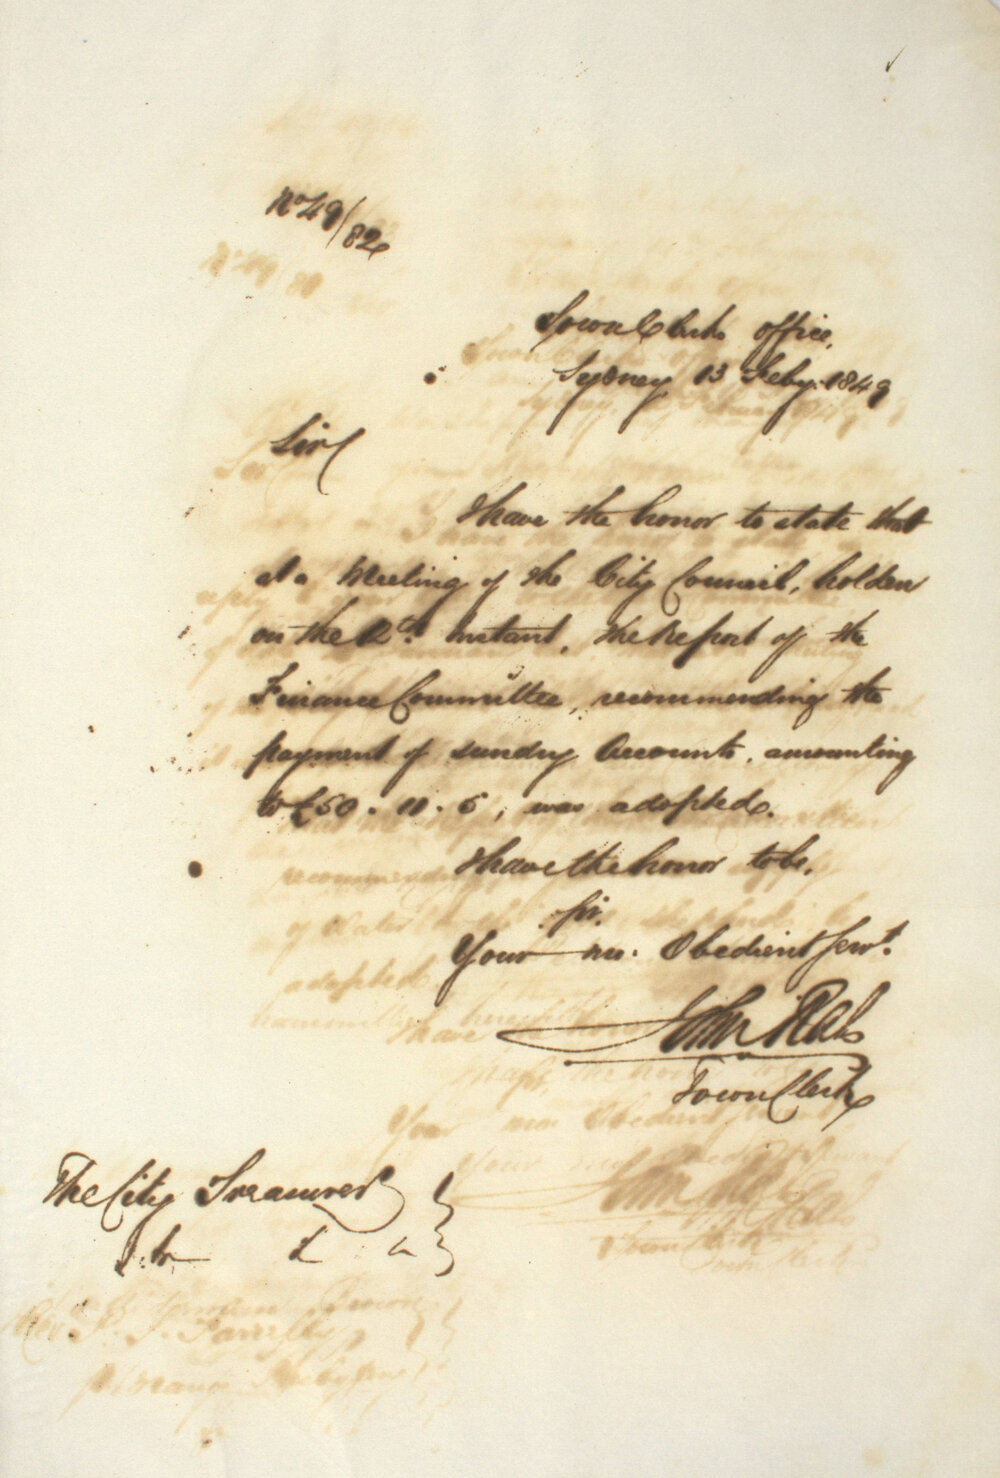 No 49/82
Town Clerks office,
Sydney 13 Feby. 1849
Sir
I have the honor to state that
at a Meeting of the City Council, holden
on the 12th. instant, the Report of the
Finance Committee, recommending the
payment of sundry Accounts, amounting
to £50. 11. 6, was adopted.
I have the honor to be,
Sir,
Your mo. Obedient Servt.
John Rae
Town Clerk
The City Treasurer